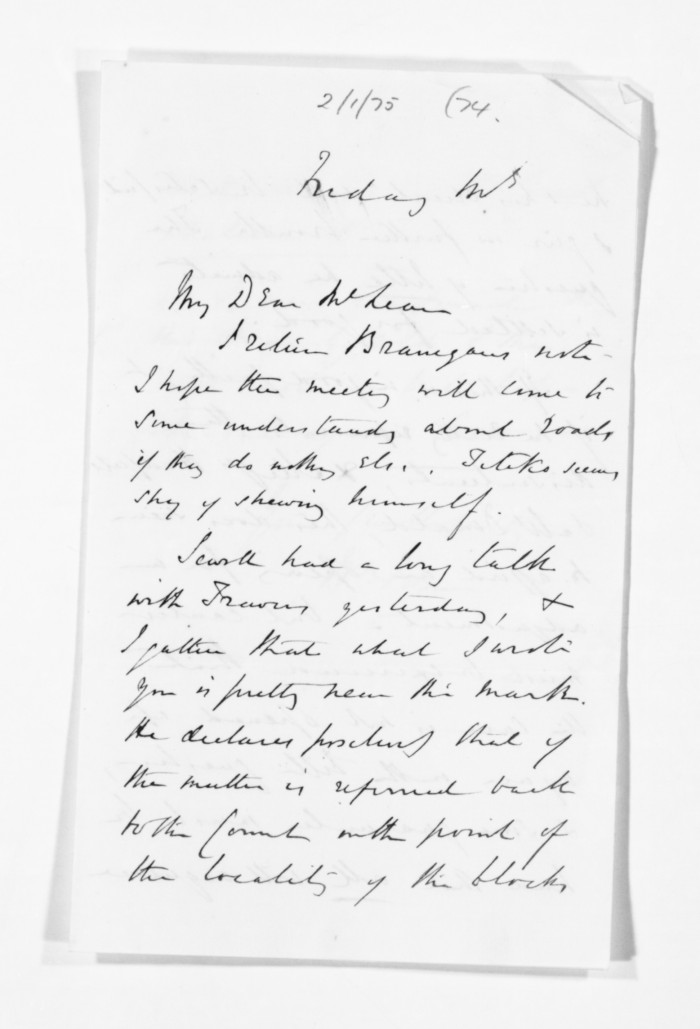 2/1/75 (74.
Friday Mg
My Dear McLean
I return Branegans note -
I hope the meeting will come to
some understandg about Roads
if they do nothg else. Teteko seems
shy of shewing himself.
had a long talk
with Travers yesterday, &
I gather that what I wrote
you is pretty near the mark.
He declares positively that if
the matter is referred back
to the Court on the point of
the locality of the blocks